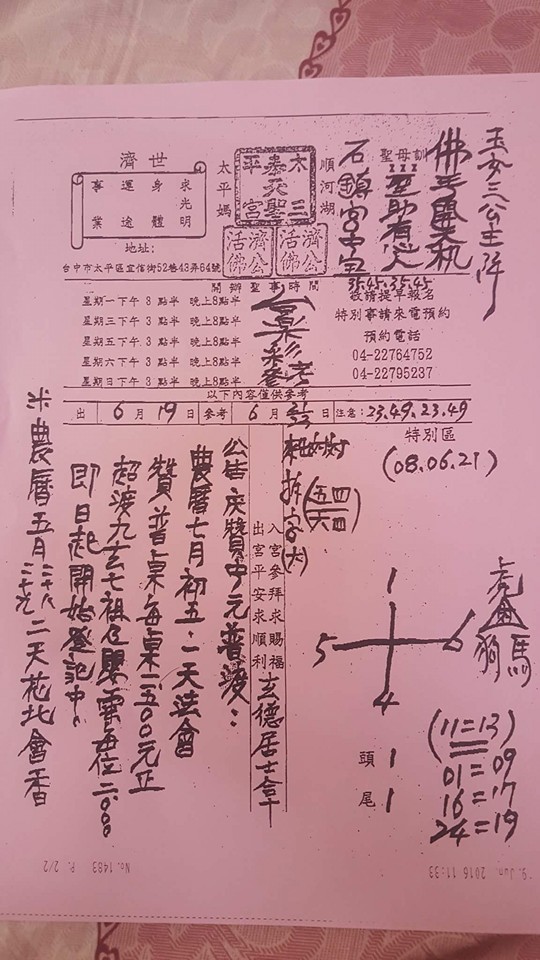 玄女三公主降
佛手單天机
聖母訓
聖助有心
石鎮宮
順河湖
太三
奉天聖
平宮
太平媽
濟公
活佛
濟公
活佛
世
濟
求光明
身體
運途
事業
地址:
台中市太平區宜信街52巷43弄64號
35.45.35.45
開辦聖事時間
星期一下午 3 點半 晚上8點半
星期三下午 3 點半 晚上8點半
星期五下午 3 點半 晚上8點半
星期六下午 3 點半 晚上8點半
星期日下午 3 點半 晚上8點半
六合彩參考
敬請提早報名
特別事請來電預約
預約電話
04-22764752
04-22795237
以下內容僅供參考
出 6 月 19 日 參考 6 月 日 注意: 23.49.23.49
特別區
(08.06.21)
拆字(六)
虎
狗馬
1
5 6
4
(11=13)
01=09
16=17
24=19
頭 1
尾 1
入宮參拜求賜福
出宮平安求順利
玄德居士拿
公告慶贊中元普渡:
農曆七月初五.一天法會
贊普桌每桌一五00元正
超渡九玄七祖及嬰靈每位二000
即日起開始登記中。
農曆五月二十八 二十九 二天花北會香
9. Jun. 2016 11:33
No. 1483 P. 2/2